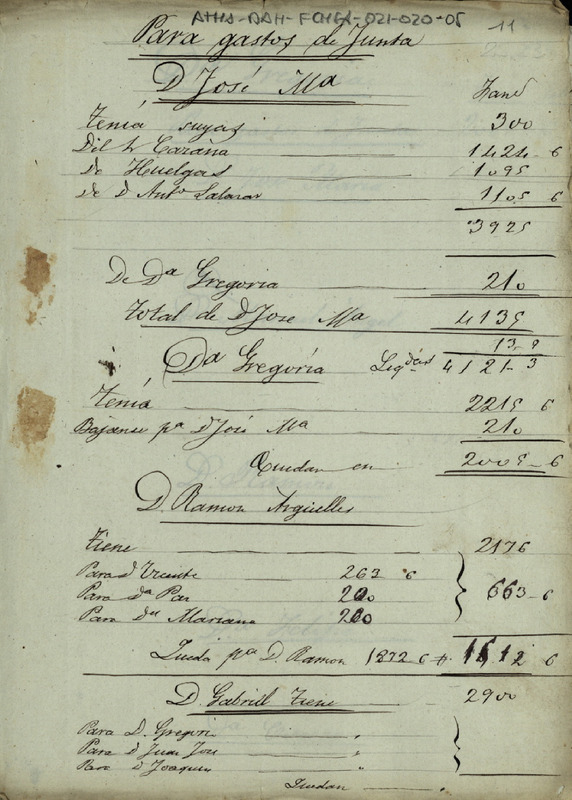 AHN-DAH-FCHGA-021-020-05 11
Para gastos de Junta
D José Mª
Fanˢ
Tenía suyas 300
Del Caraña 1424-6
De Huelgas 1095
de D Antº Salazar 1105 6
3925
De Dª Gregoria 210
Total de D Jose Mª 4135
13-9
Dª Gregoria Liqᵈᵃˢ 4121-3
Tenía 2215 6
Bájanse pª D José Mª 210
Quedan en 2005-6
D. Ramon Argüelles
tiene 2176
Para D Vicente 263 6
Para Dª Paz 200 663-6
Para Dª Mariana 200
Queda pª D. Ramon 1872 6 # 1512 6
D Gabriel Tiene 2900
Para D. Gregori "
Para D Juan José "
Para D Joaquin "
Quedan "